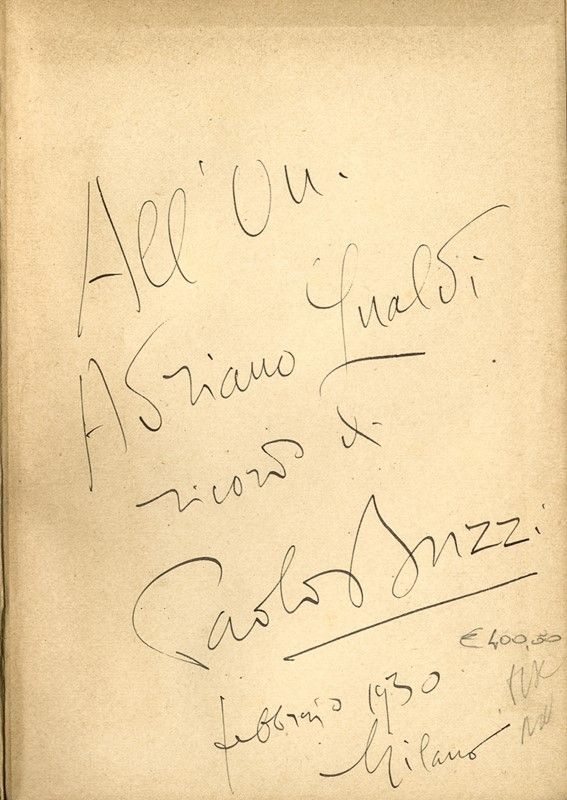 All'On.
Adriano Lualdi
ricordo di
Paolo Buzzi
febbraio 1930
Milano
€ 400,50